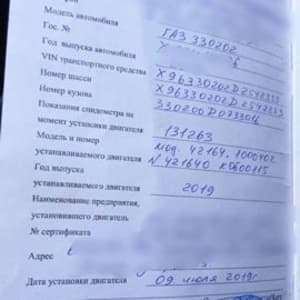 Модель автомобиля ГАЗ 330202
Гос. №
Год выпуска автомобиля
VIN транспортного средства X96330202D2542333
Номер шасси
Номер кузова 330200D0733016
Показания спидометра на
момент установки двигателя 131263
Модель и номер мод. 42164. 1000402
устанавливаемого двигателя N 421640
Год выпуска
устанавливаемого двигателя 2019
Наименование предприятия,
установившего двигатель
№ сертификата
Адрес
Дата установки двигателя 09 июля 2019г